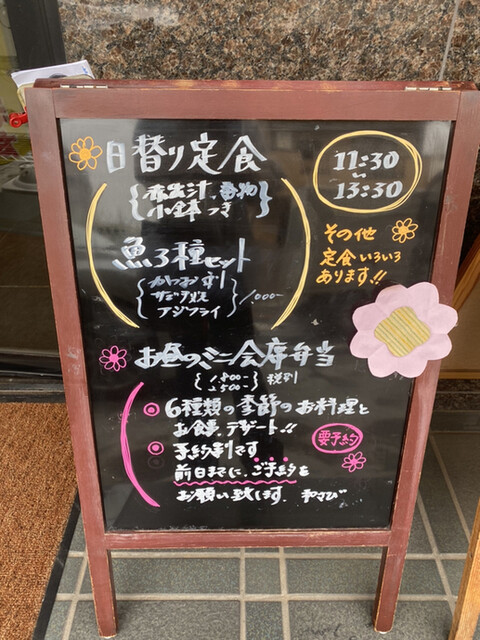 日替り定食
赤出汁、香物
小鉢つき
11:30
〜
13:30
魚3種セット
かつおすり
アジフライ
1000-
その他
定食いろいろ
あります!!
お昼のミニ会席弁当
1,800-
2,500-
税別
6種類の季節のお料理と
お食事、デザート!!
予約制です
要予約
前日までに、ご予約を
お願い致します。 わさび